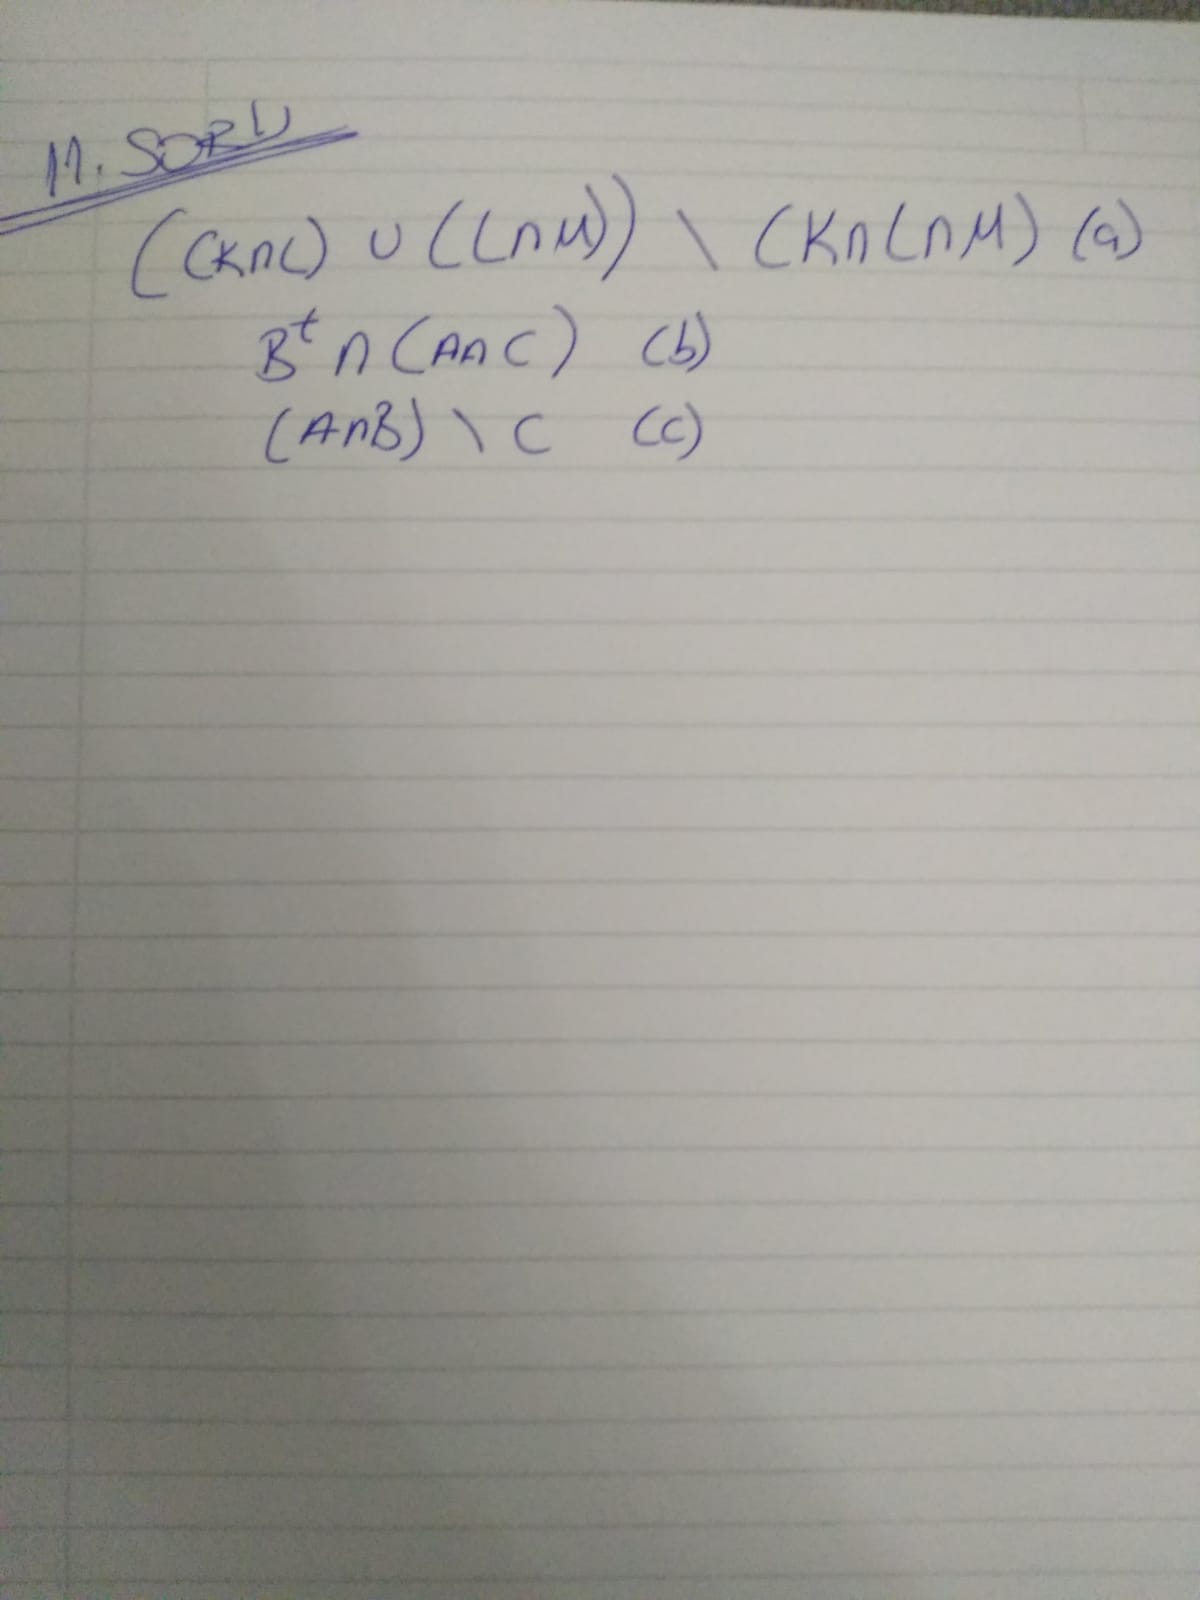 11. SORU
((K∩L) ∪ (L∩M)) \ (K∩L∩M) (a)
Bᵗ ∩ (A∩C) (b)
(A∩B) \ C (c)